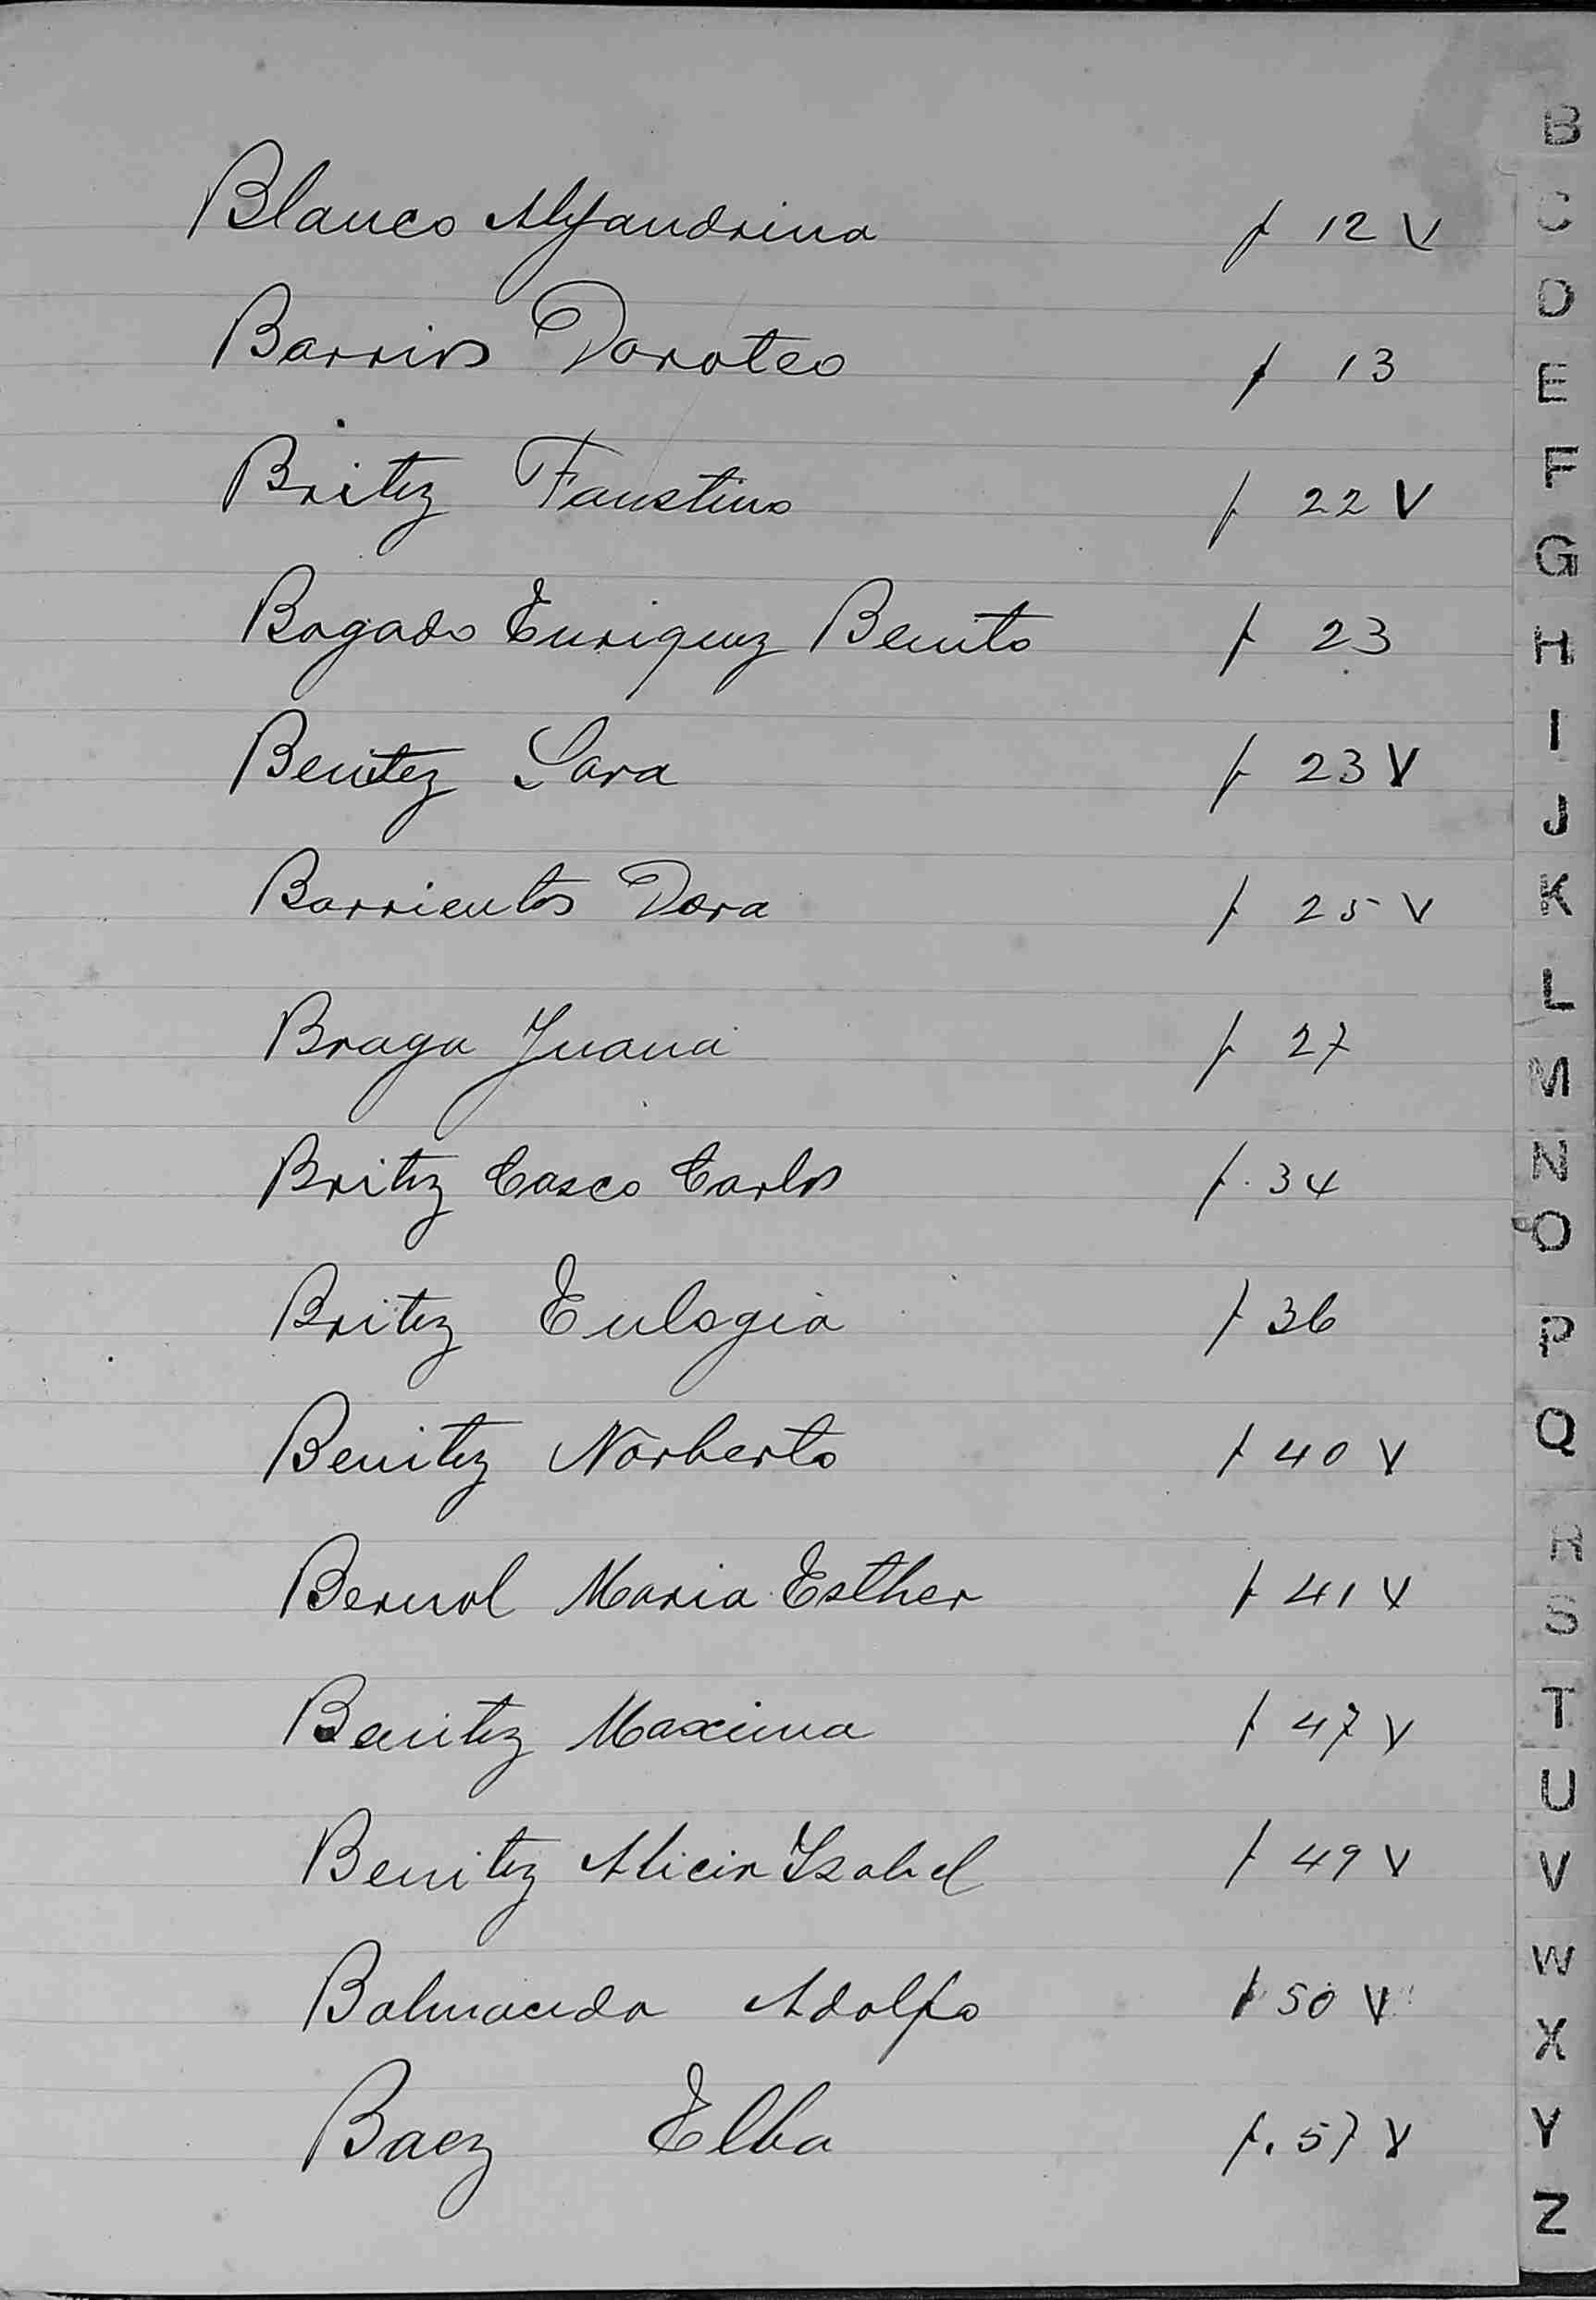 Blanco Alejandrina f 12 V
Barrios Doroteo f 13
Britez Faustino f 22 V
Bogado Enriquez Benito f 23
Benitez Sara f 23 V
Barrientos Dora f 25 V
Braga Juana f 27
Britez Casco Carlos f. 34
Britez Eulogia f 36
Benitez Norberto f 40 V
Bernal Maria Esther f 41 V
Benitez Maxima f 47 V
Benitez Alicia Isabel f 49 V
Balmaceda Adolfo f 50 V
Baez Elba f. 57 V
B
C
D
E
F
G
H
I
J
K
L
M
N
O
P
Q
R
S
T
U
V
W
X
Y
Z